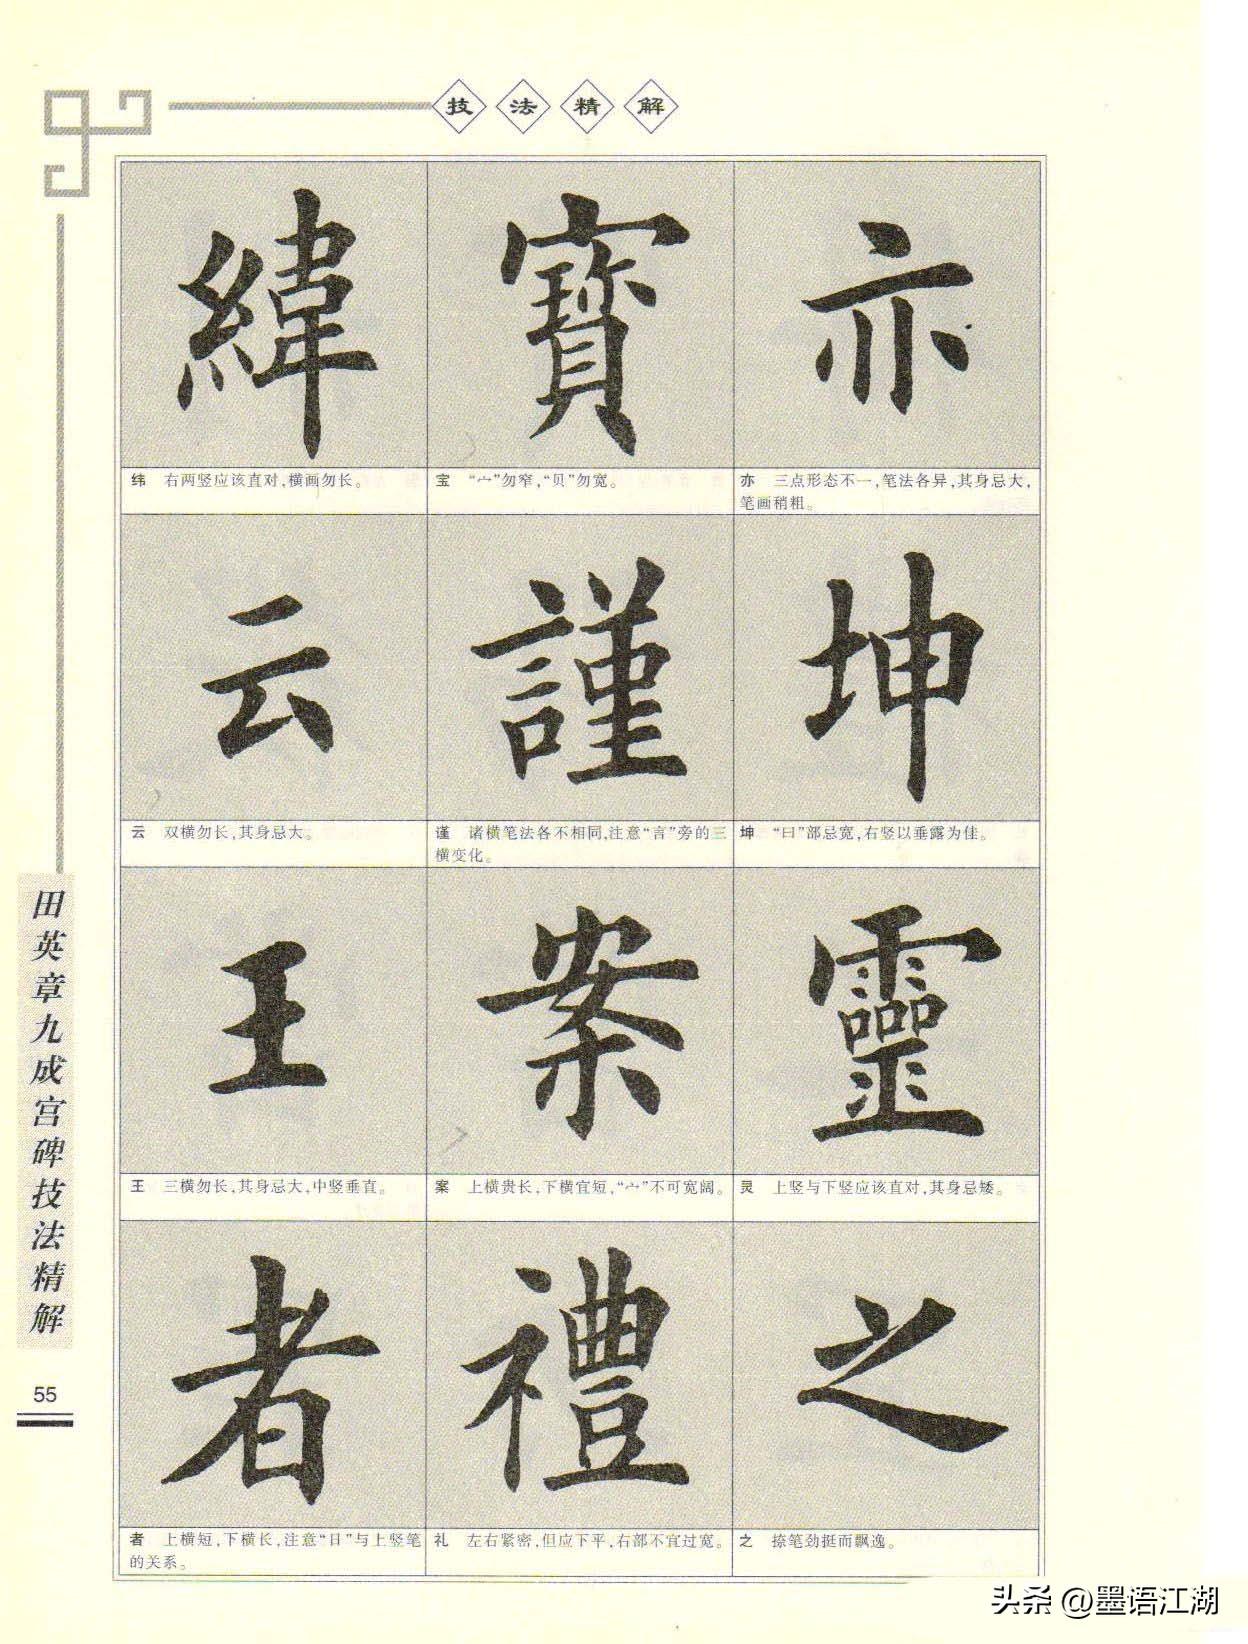 技法精解
緯 寶 亦
纬 右两竖应该直对,横画勿长。
宝 “宀”勿窄,“贝”勿宽。
亦 三点形态不一,笔法各异,其身忌大,
笔画稍粗。
云 謹 坤
云 双横勿长,其身忌大。
谨 诸横笔法各不相同,注意“言”旁的三
横变化。
坤 “曰”部忌宽,右竖以垂露为佳。
王 案 靈
王 三横勿长,其身忌大,中竖垂直。
案 上横贵长,下横宜短,“宀”不可宽阔。
灵 上竖与下竖应该直对,其身忌矮。
者 禮 之
者 上横短,下横长,注意“日”与上竖笔
的关系。
礼 左右紧密,但应下平,右部不宜过宽。
之 捺笔劲挺而飘逸。
田英章九成宫碑技法精解
55
头条 @墨语江湖